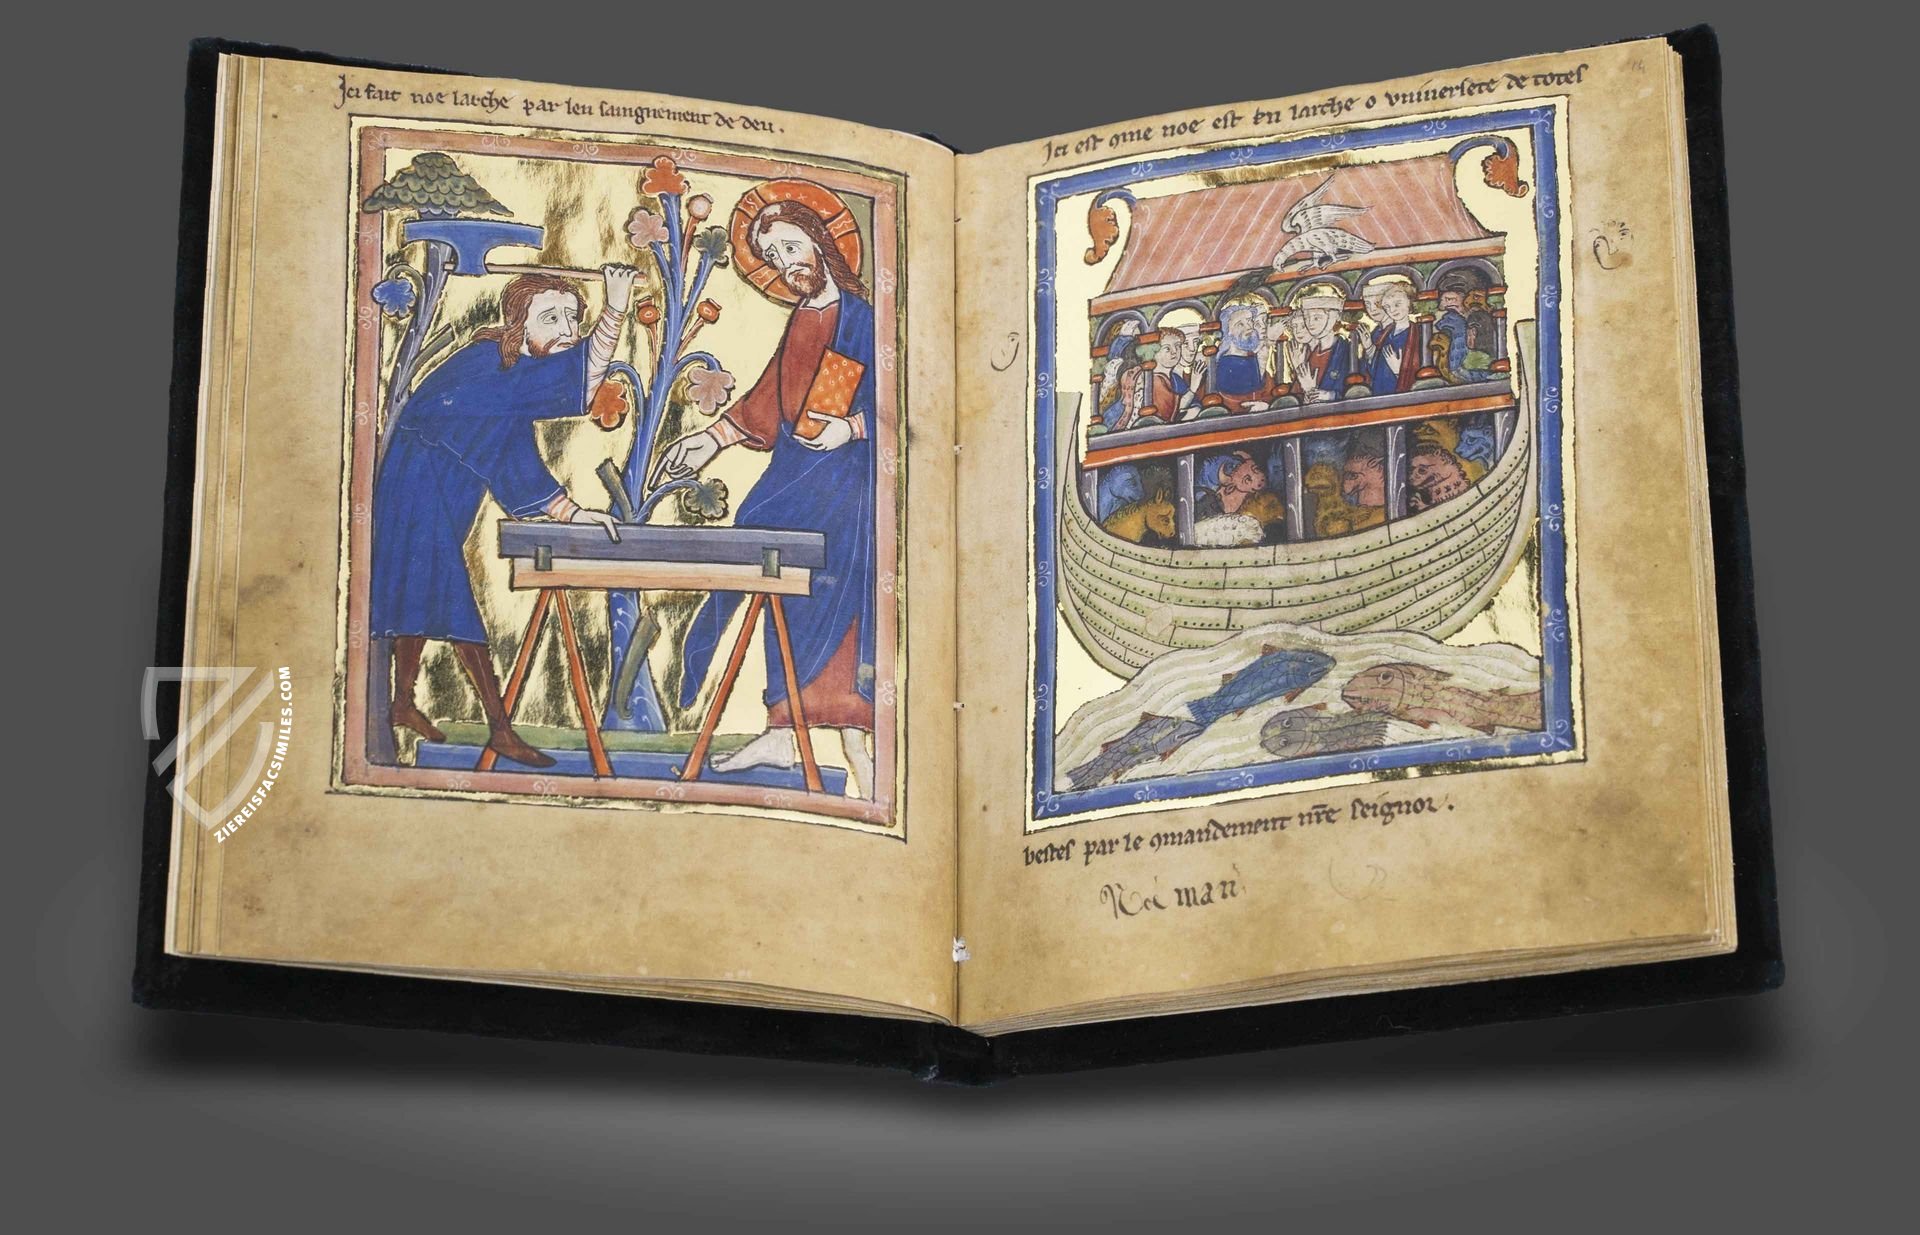 Ici fait noe larche par len saingnement de deu.
Ici est qme noe est en larche o vniuersete de totes
bestes par le qmandement nr̄e seignor.
man
14
ZIEREISFACSIMILES.COM